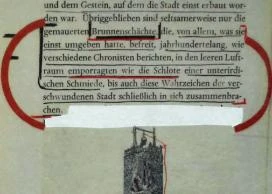 und dem Gestein, auf dem die Stadt einst erbaut wor-
den war. Übriggeblieben sind seltsamerweise nur die
gemauerten Brunnenschächte, die, von allem, was sie
einst umgeben hatte, befreit, jahrhundertelang, wie
verschiedene Chronisten berichten, in den leeren Luft-
raum emporragten wie die Schlote einer unterirdi-
schen Schmiede, bis auch diese Wahrzeichen der ver-
schwundenen Stadt schließlich in sich zusammenbra-
chen.